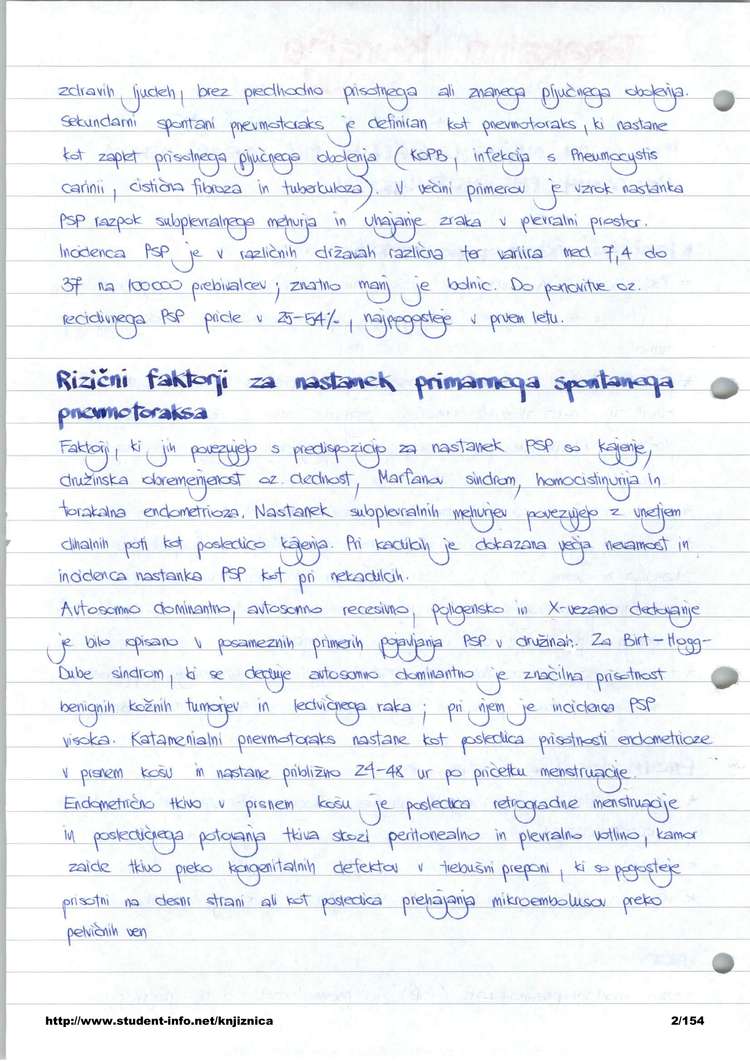 zdravih ljudeh, brez predhodno prisotnega ali znanega pljučnega obolenja.
Sekundarni spontani pnevmotoraks je definiran kot pnevmotoraks, ki nastane
kot zaplet prisotnega pljučnega obolenja (KOPB, infekcija s Pneumocystis
carinii, cistična fibroza in tuberkuloza). V večini primerov je vzrok nastanka
PSP razpok subplevralnega mehurja in uhajanje zraka v plevralni prostor.
Incidenca PSP je v različnih državah različna ter variira med 7,4 do
37 na 100000 prebivalcev; znatno manj je bolnic. Do ponovitve oz.
recidivnega PSP pride v 25-54%, najpogosteje v prvem letu.
Rizični faktorji za nastanek primarnega spontanega
pnevmotoraksa
Faktorji, ki jih povezujejo s predispozicijo za nastanek PSP so kajenje,
družinska obremenjenost oz. dednost, Marfanov sindrom, homocistinurija in
torakalna endometrioza. Nastanek subplevralnih mehurjev povezujejo z vnetjem
dihalnih poti kot posledico kajenja. Pri kadilcih je dokazana večja nevarnost in
incidenca nastanka PSP kot pri nekadilcih.
Avtosomno dominantno, avtosomno recesivno, poligensko in X-vezano dedovanje
je bilo opisano v posameznih primerih pojavljanja PSP v družinah. Za Birt-Hogg-
Dube sindrom, ki se deduje avtosomno dominantno je značilna prisotnost
benignih kožnih tumorjev in ledvičnega raka; pri njem je incidenca PSP
visoka. Katamenialni pnevmotoraks nastane kot posledica prisotnosti endometrioze
v prsnem košu in nastane približno 24-48 ur po pričetku menstruacije.
Endometrično tkivo v prsnem košu je posledica retrogradne menstruacije
in posledičnega potovanja tkiva skozi peritonealno in plevralno votlino, kamor
zaide tkivo preko kongenitalnih defektov v trebušni preponi, ki so pogosteje
prisotni na desni strani ali kot posledica prehajanja mikroembolusov preko
pelvičnih ven
http://www.student-info.net/knjiznica
2/154